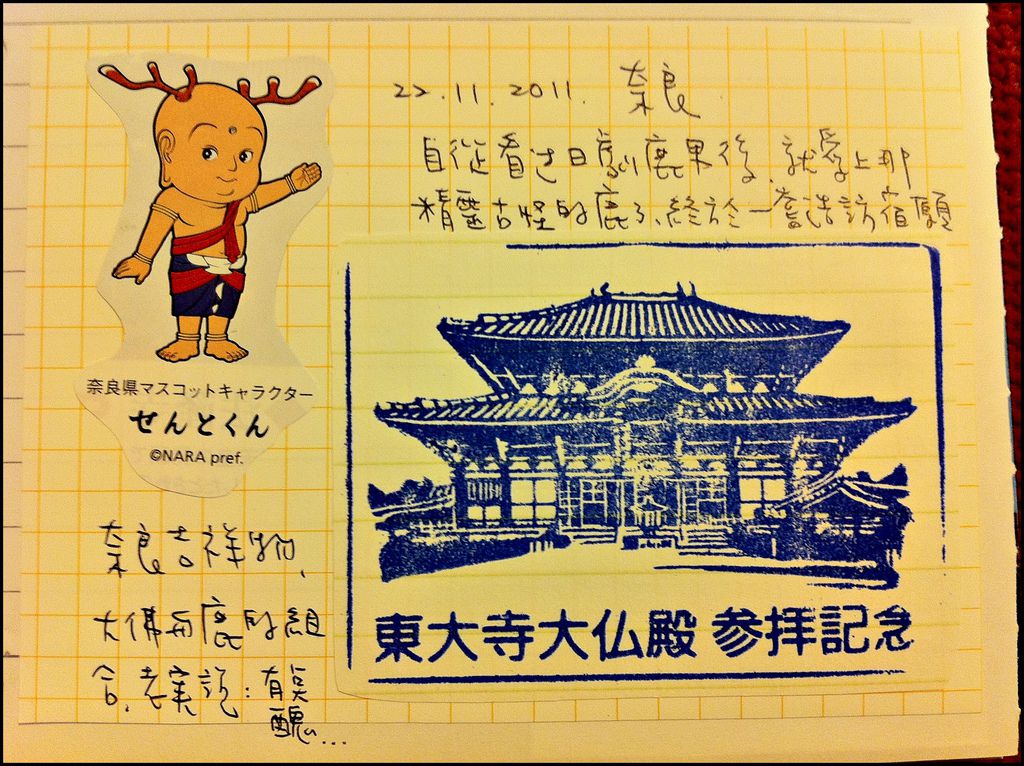 22.11.2011. 奈良
自從看过日劇鹿男後,就愛上那
精靈古怪的鹿了,終於一耆造訪宿願
奈良県マスコットキャラクター
せんとくん
©NARA pref.
奈良吉祥物,
大佛与鹿的組
合,老実説:有点
醜...
東大寺大仏殿 参拝記念